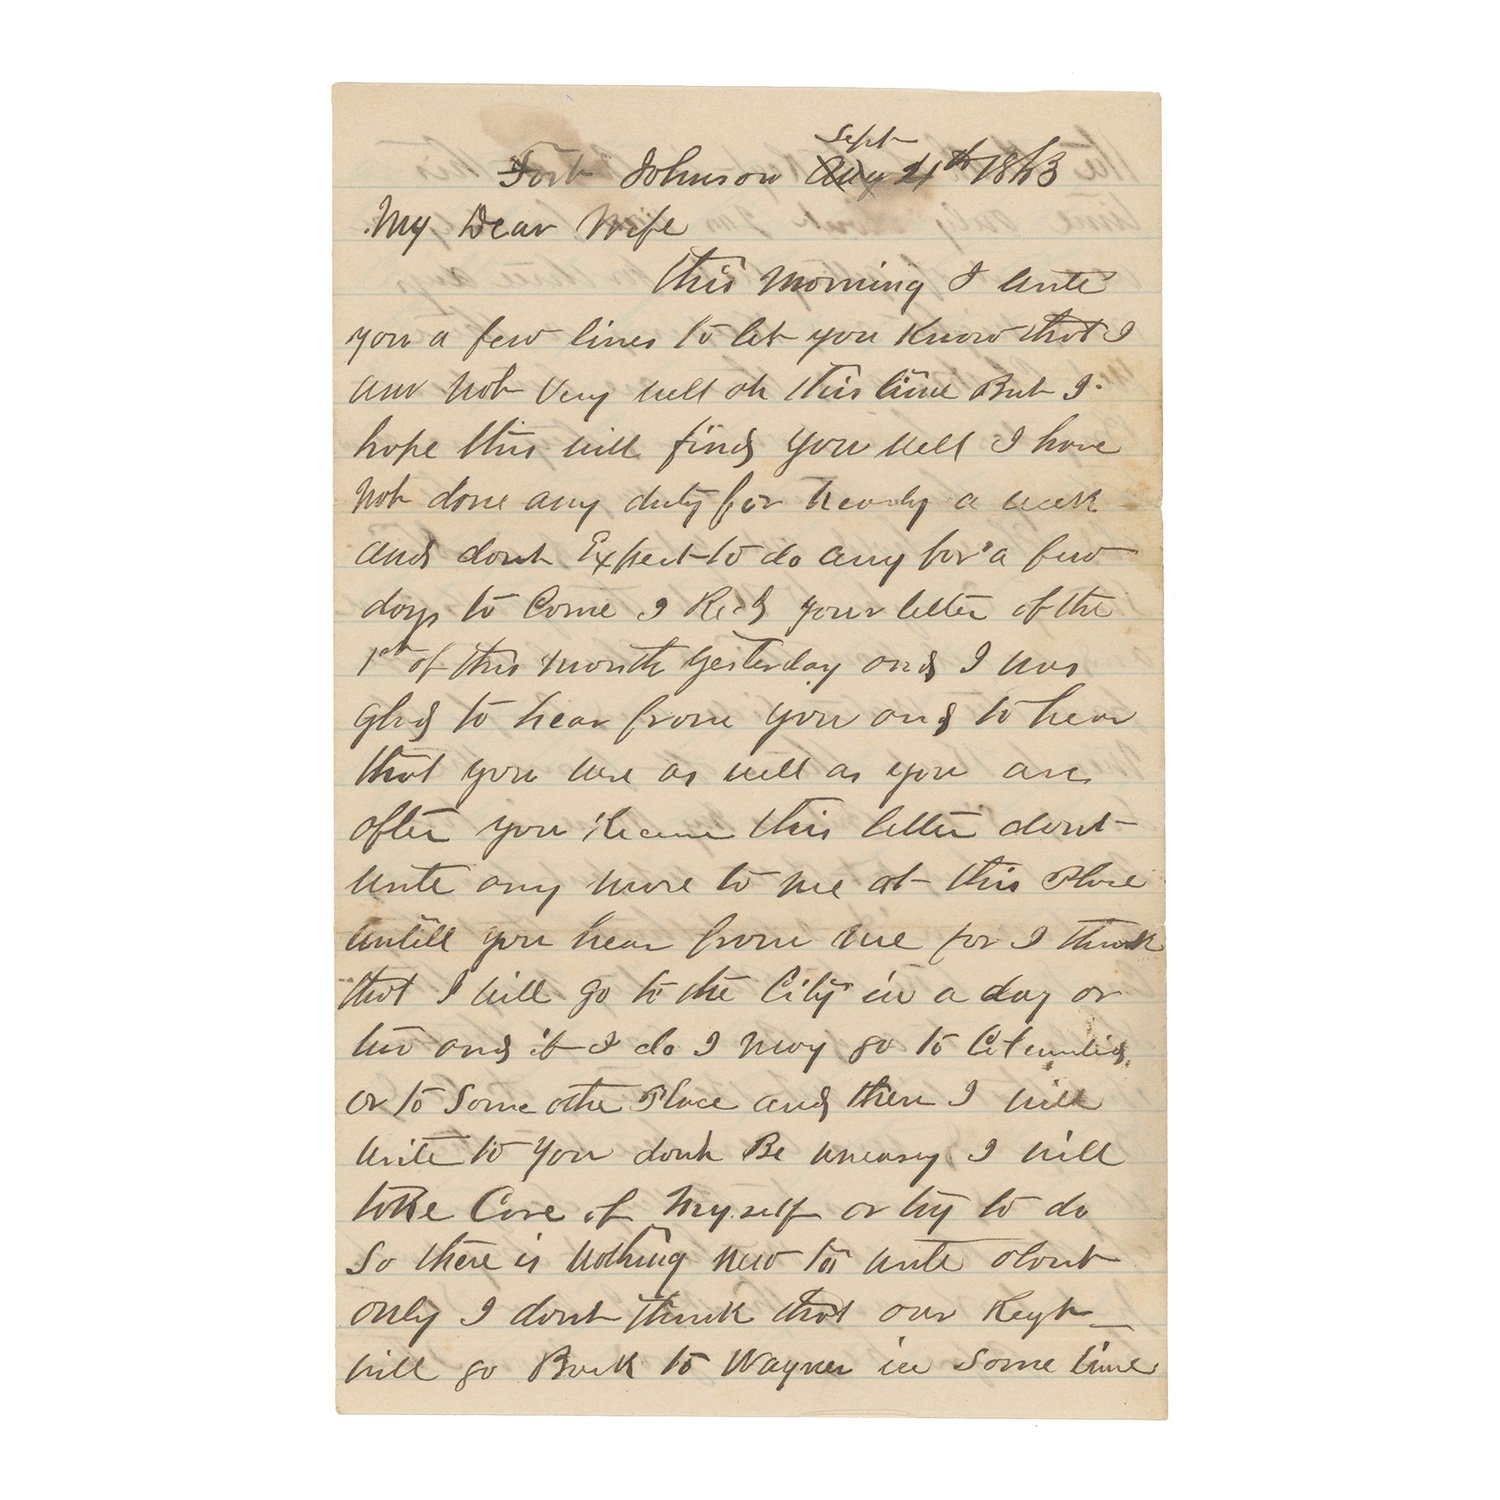 Sept
Fort Johnson Aug 4th 1863
My Dear Wife
This Morning I write
you a few lines to let you Know that I
am Not Very well at this time But I
hope this will find you well I have
Not done any duty for Nearly a week
and dont Expect to do any for a few
days to Come I Recd your letter of the
1st of this month Yesterday and I was
glad to hear from you and to hear
that you were as well as you are
after you Receive this letter dont
write any more to me at this Place
untill you hear from me for I think
that I will go to the City in a day or
two and if I do I may go to Columbia
or to Some othe Place and then I will
write to You dont Be uneasy I will
take Care of Myself or try to do
So there is Nothing New to write about
only I dont think that our Regt
will go Back to Wagner in Some time